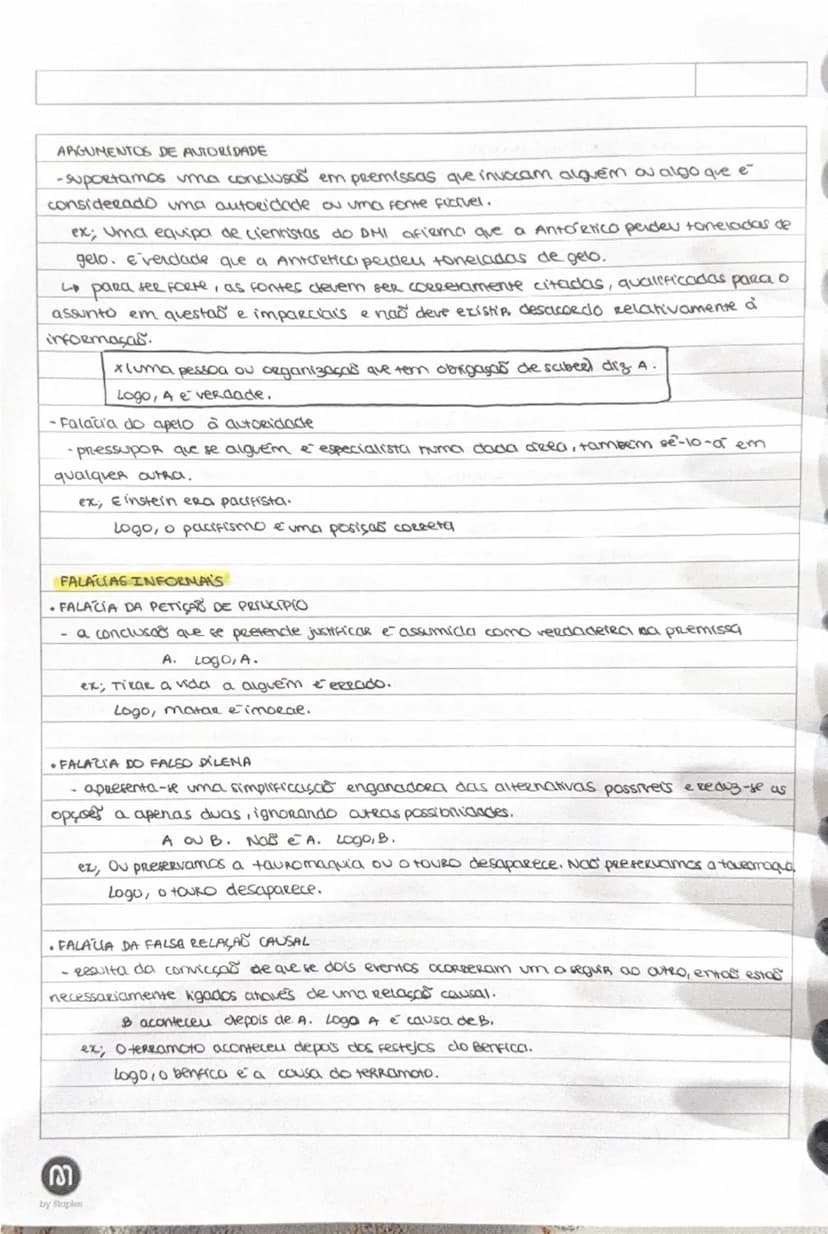 ARGUMENTOS DE AUTORIDADE
- suportamos uma conclusão em premissas que invocam alguém ou algo que é
considerado uma autoridade ou uma fonte fiável.
ex; Uma equipa de cientistas do DMI afirma que a Antártica perdeu toneladas de
gelo. É verdade que a Antártica perdeu toneladas de gelo.
↳ para ser forte, as fontes devem ser corretamente citadas, qualificadas para o
assunto em questão e imparciais e não deve existir desacordo relativamente à
informação.
x (uma pessoa ou organização que tem obrigação de saber) diz A.
Logo, A é verdade.
- Falácia do apelo à autoridade
- pressupor que se alguém é especialista numa dada área, também sê-lo-á em
qualquer outra.
ex; Einstein era pacifista.
Logo, o pacifismo é uma posição correta
FALÁCIAS INFORMAIS
• FALÁCIA DA PETIÇÃO DE PRINCÍPIO
- a conclusão que se pretende justificar é assumida como verdadeira na premissa
A. Logo, A.
ex; Tirar a vida a alguém é errado.
Logo, matar é imoral.
• FALÁCIA DO FALSO DILEMA
- apresenta-se uma simplificação enganadora das alternativas possíveis e reduz-se as
opções a apenas duas, ignorando outras possibilidades.
A ou B. Não é A. Logo, B.
ex, Ou preservamos a tauromaquia ou o touro desaparece. Não preservamos a tauromaquia.
Logo, o touro desaparece.
• FALÁCIA DA FALSA RELAÇÃO CAUSAL
- resulta da convicção de que se dois eventos ocorreram um a seguir ao outro, então estão
necessariamente ligados através de uma relação causal.
B aconteceu depois de A. Logo A é causa de B.
ex; O terramoto aconteceu depois dos festejos do Benfica.
Logo, o benfica é a causa do terramoto.
by Staples